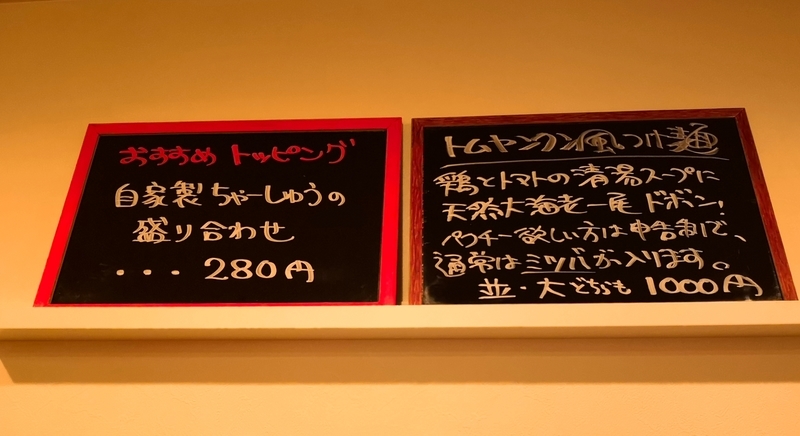 おすすめ トッピング
自家製ちゃーしゅうの
盛り合わせ
・・・280円
トムヤンクン風つけ麺
鶏とトマトの清湯スープに
天然大海老一尾ドボン!
パクチー欲しい方は申告制で、
通常はミツバが入ります。
並・大どちらも 1000円